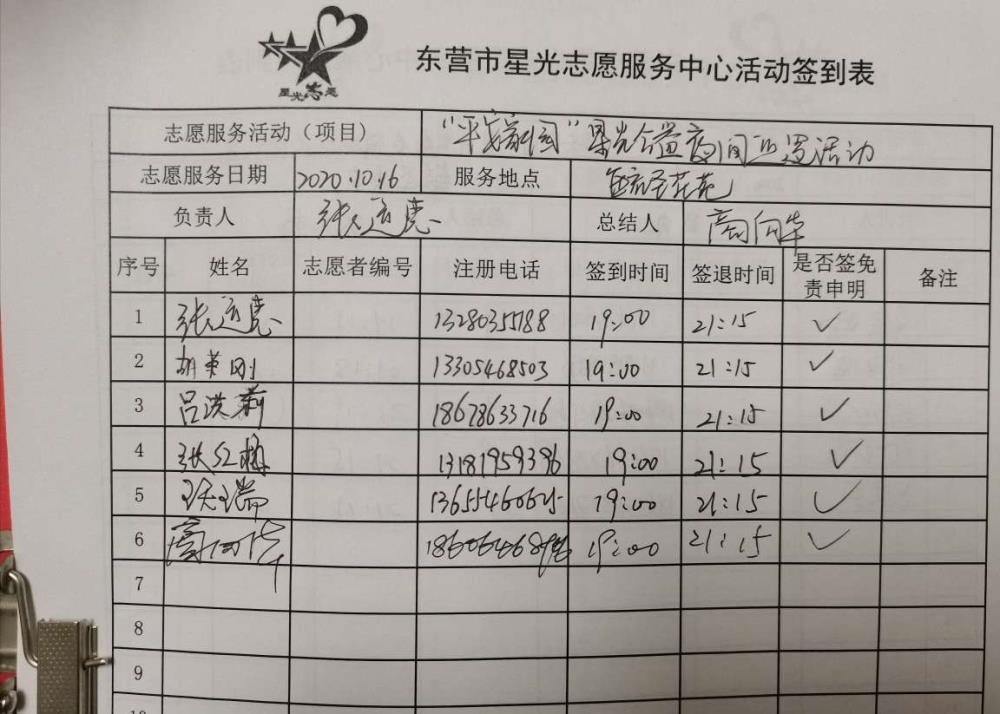 星光志愿
东营市星光志愿服务中心活动签到表
志愿服务活动（项目） 星光公益夜间巡逻活动
志愿服务日期 2020.10.16 服务地点
负责人 总结人
序号 姓名 志愿者编号 注册电话 签到时间 签退时间 是否签免责申明 备注
1 13280355188 19:00 21:15 ✓
2 胡英刚 13305468503 19:00 21:15 ✓
3 吕洪莉 18678633716 19:00 21:15 ✓
4 张红梅 13181959396 19:00 21:15 ✓
5 13655460625 19:00 21:15 ✓
6 19:00 21:15 ✓
7
8
9
10